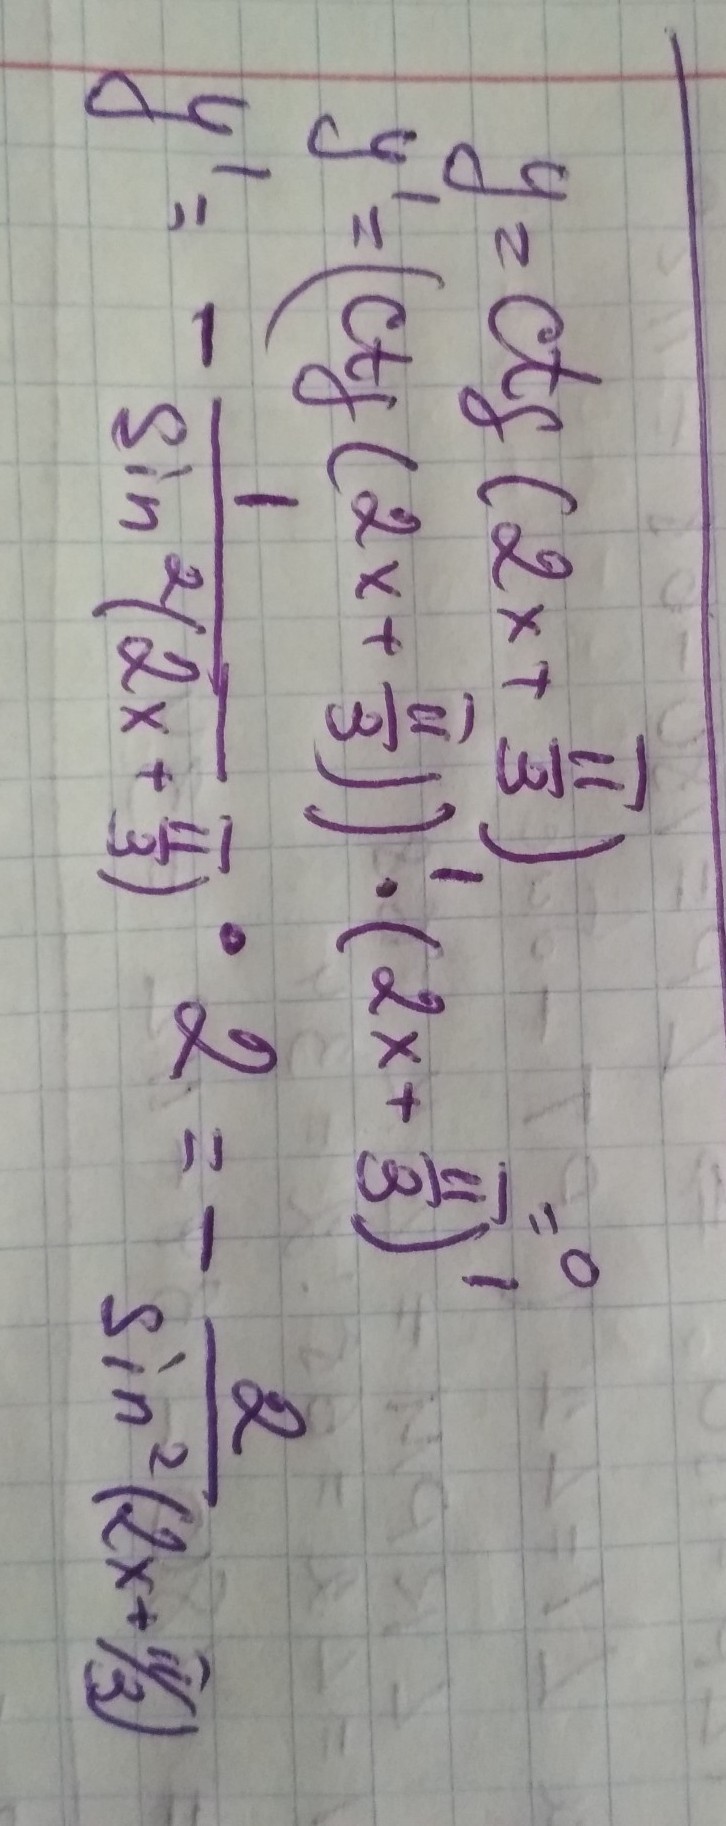 y = ctg (2x + π/3)
y' = (ctg (2x + π/3))' · (2x + π/3)' =0
y' = - 1/sin²(2x + π/3) · 2 = - 2/sin²(2x + π/3)